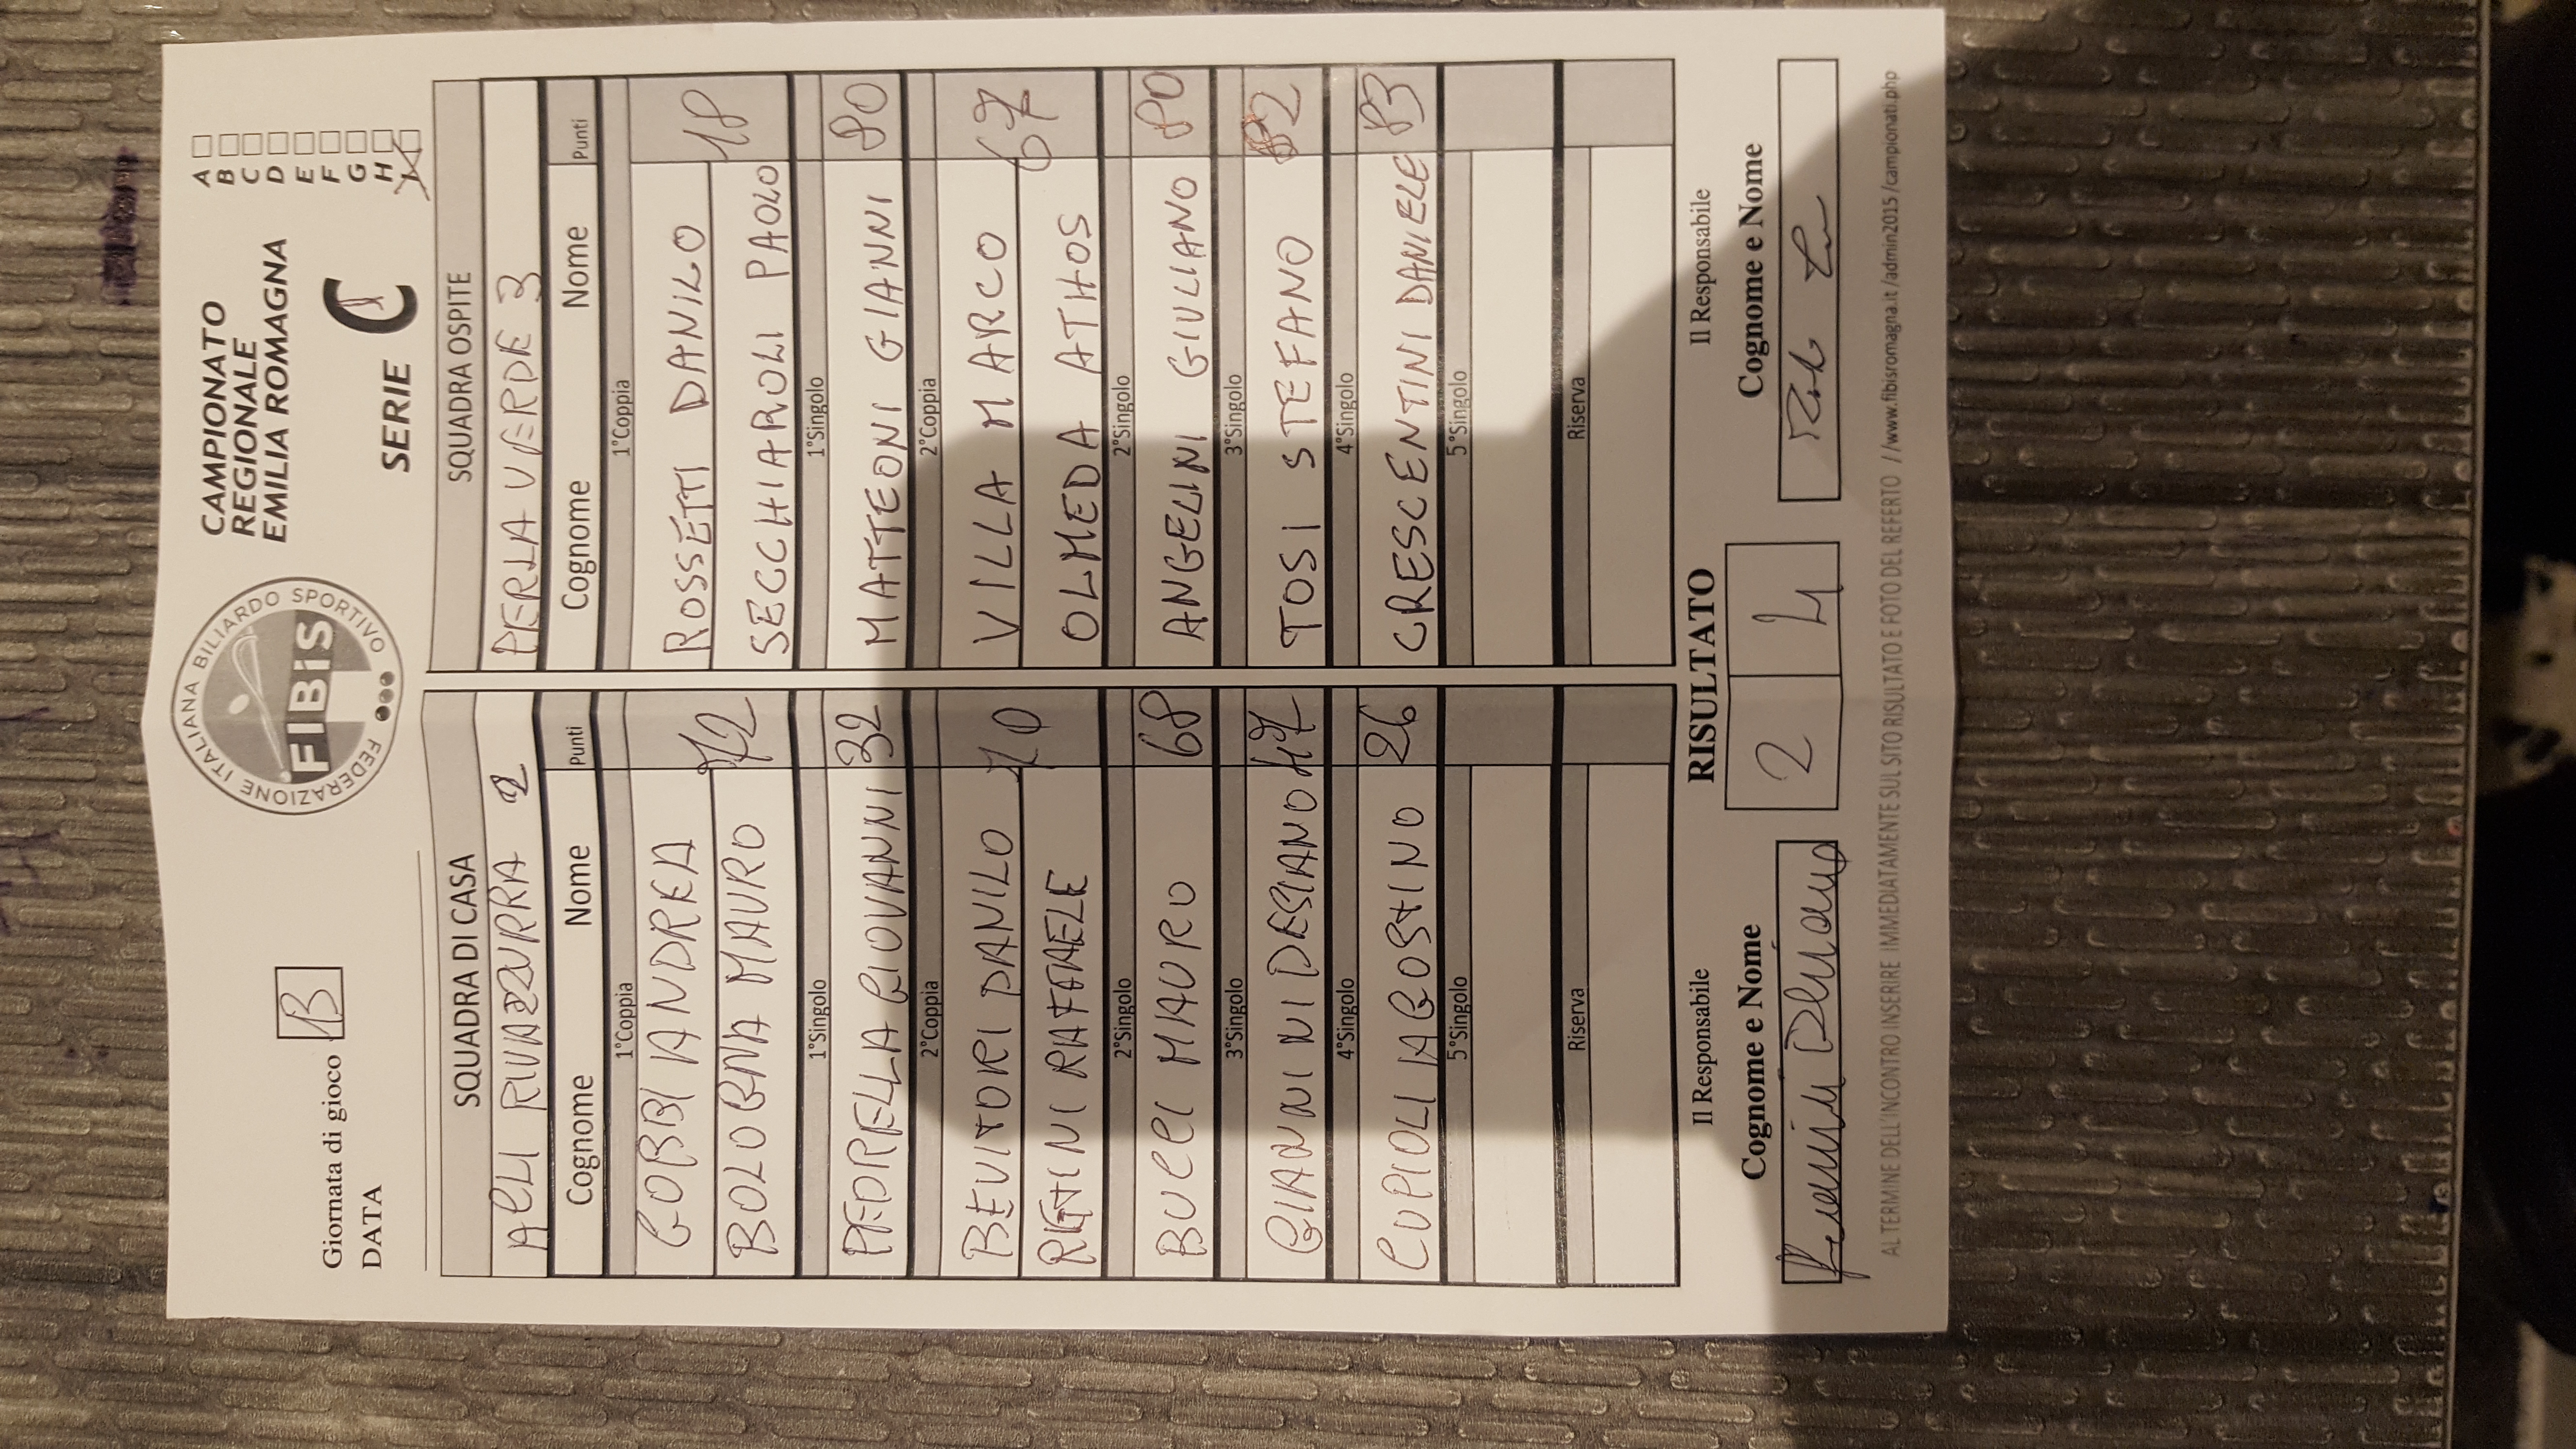 Giornata di gioco B
DATA
FEDERAZIONE ITALIANA BILIARDO SPORTIVO
FIBiS
CAMPIONATO
REGIONALE
EMILIA ROMAGNA
SERIE C
A
B
C
D
E
F
G
H
SQUADRA DI CASA SQUADRA OSPITE
ACLI RIVAZZURRA 2 PERLA VERDE 3
Cognome Nome Punti Cognome Nome Punti
1°Coppia 1°Coppia
GOBBI ANDREA ROSSETTI DANILO
BOLOGNA MAURO 72 SECCHIAROLI PAOLO 18
1°Singolo 1°Singolo
PEDRELLA GIOVANNI 32 MATTEONI GIANNI 80
2°Coppia 2°Coppia
BEVITORI DANILO 70 VILLA MARCO 67
RAFFAELE OLMEDA ATHOS
2°Singolo 2°Singolo
BUCCI MAURO 68 ANGELINI GIULIANO 80
3°Singolo 3°Singolo
GIANNINI DESIANO 47 TOSI STEFANO 82
4°Singolo 4°Singolo
CUPIOLI AGOSTINO 26 CRESCENTINI DANIELE 83
5°Singolo 5°Singolo
Riserva Riserva
Il Responsabile RISULTATO Il Responsabile
Cognome e Nome 2 4 Cognome e Nome
AL TERMINE DELL'INCONTRO INSERIRE IMMEDIATAMENTE SUL SITO RISULTATO E FOTO DEL REFERTO //www.fibisromagna.it/admin2015/campionati.php